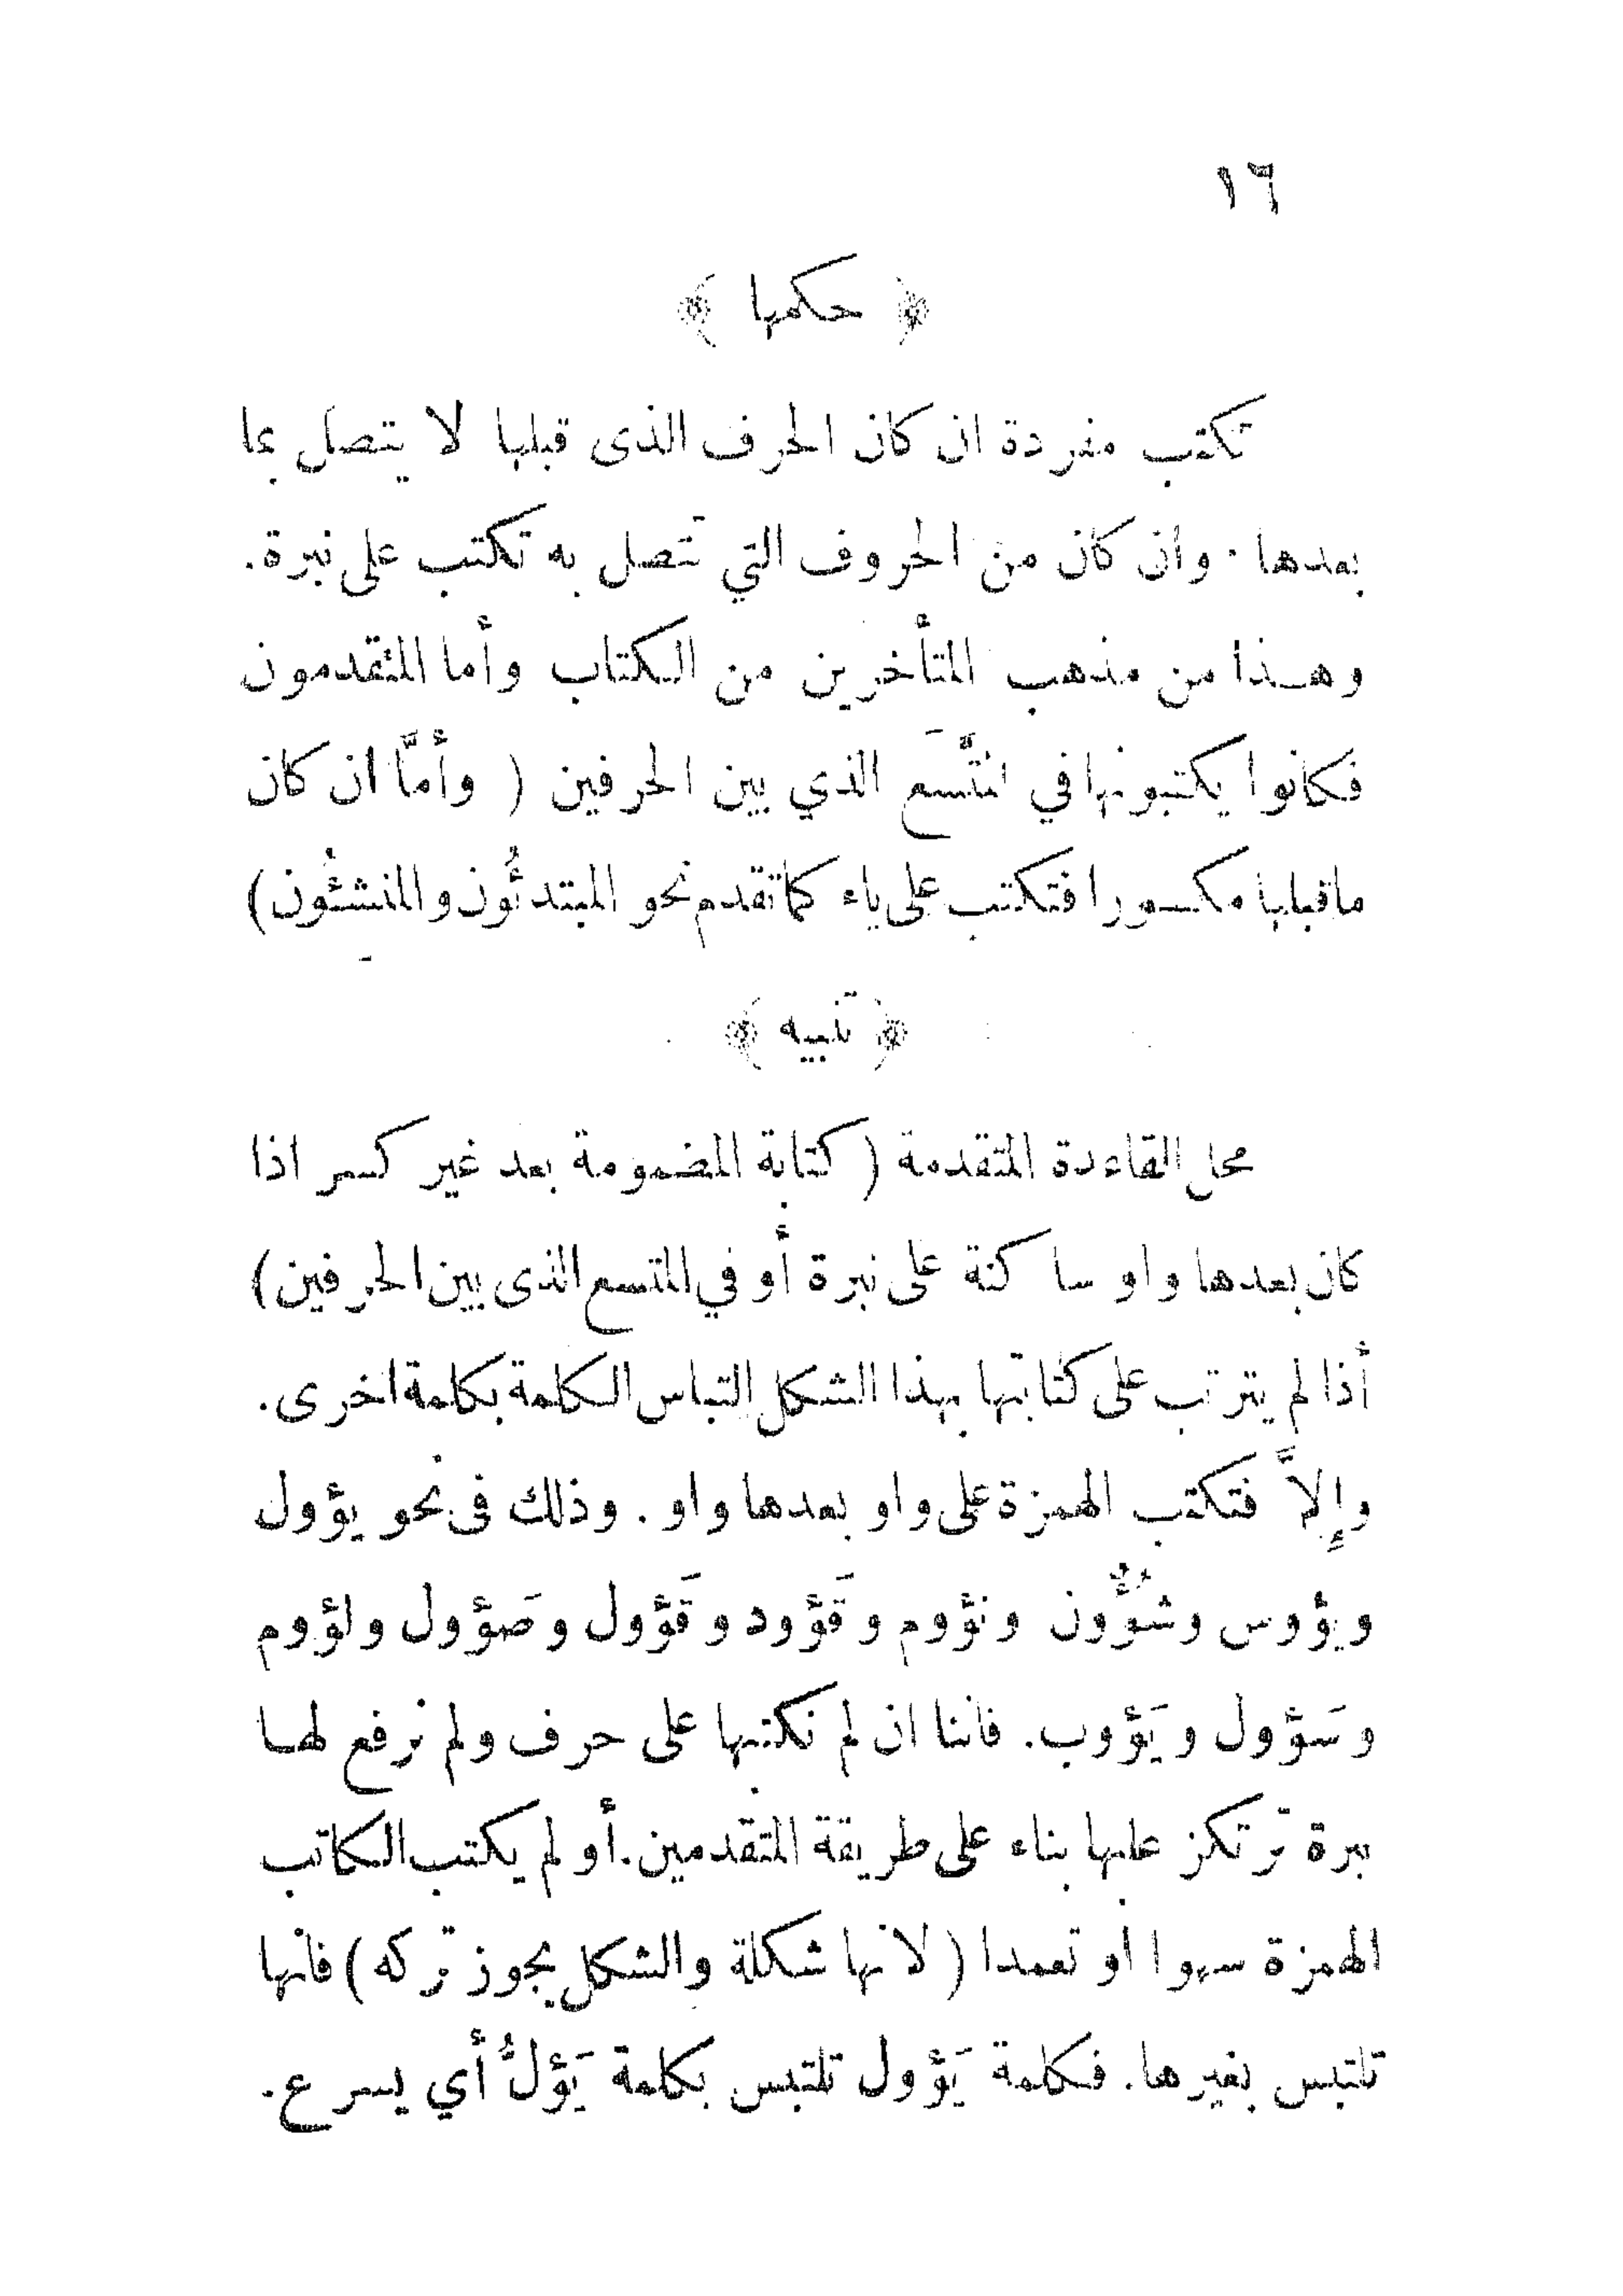 ١٦
﴿ حكمها ﴾
تكتب مفردة ان كان الحرف الذى قبلها لا يتصل بما
بعدها . وان كان من الحروف التي تتصل به تكتب على نبرة.
وهذا من مذهب المتأخرين من الكتاب وأما المتقدمون
فكانوا يكتبونها في المتَّسَع الذي بين الحرفين ( وأمَّا ان كان
ماقبلها مكسورا فتكتب على ياء كما تقدم نحو المبتدئُون والمنشئُون)
﴿ تنبيه ﴾
محل القاعدة المتقدمة ( كتابة المضمومة بعد غير كسر اذا
كان بعدها واو ساكنة على نبرة أو في المتسع الذى بين الحرفين)
أذا لم يترتب على كتابتها بهذا الشكل التباس الكلمة بكلمة اخرى.
وإِلاَّ فتكتب الهمزة على واو بعدها واو . وذلك فى نحو يؤول
ويؤوس وشُؤُون ونؤوم وقَؤود وقَؤول وصَؤول ولؤوم
وسَؤول ويَؤوب. فاننا ان لم نكتبها على حرف ولم نرفع لها
نبرة ترتكز عليها بناء على طريقة المتقدمين. أو لم يكتب الكاتب
الهمزة سهوا او تعمدا ( لانها شكلة والشكل يجوز تركه ) فانها
تلتبس بغيرها. فكلمة يَؤول تلتبس بكلمة يَؤلُّ أي يسرع.